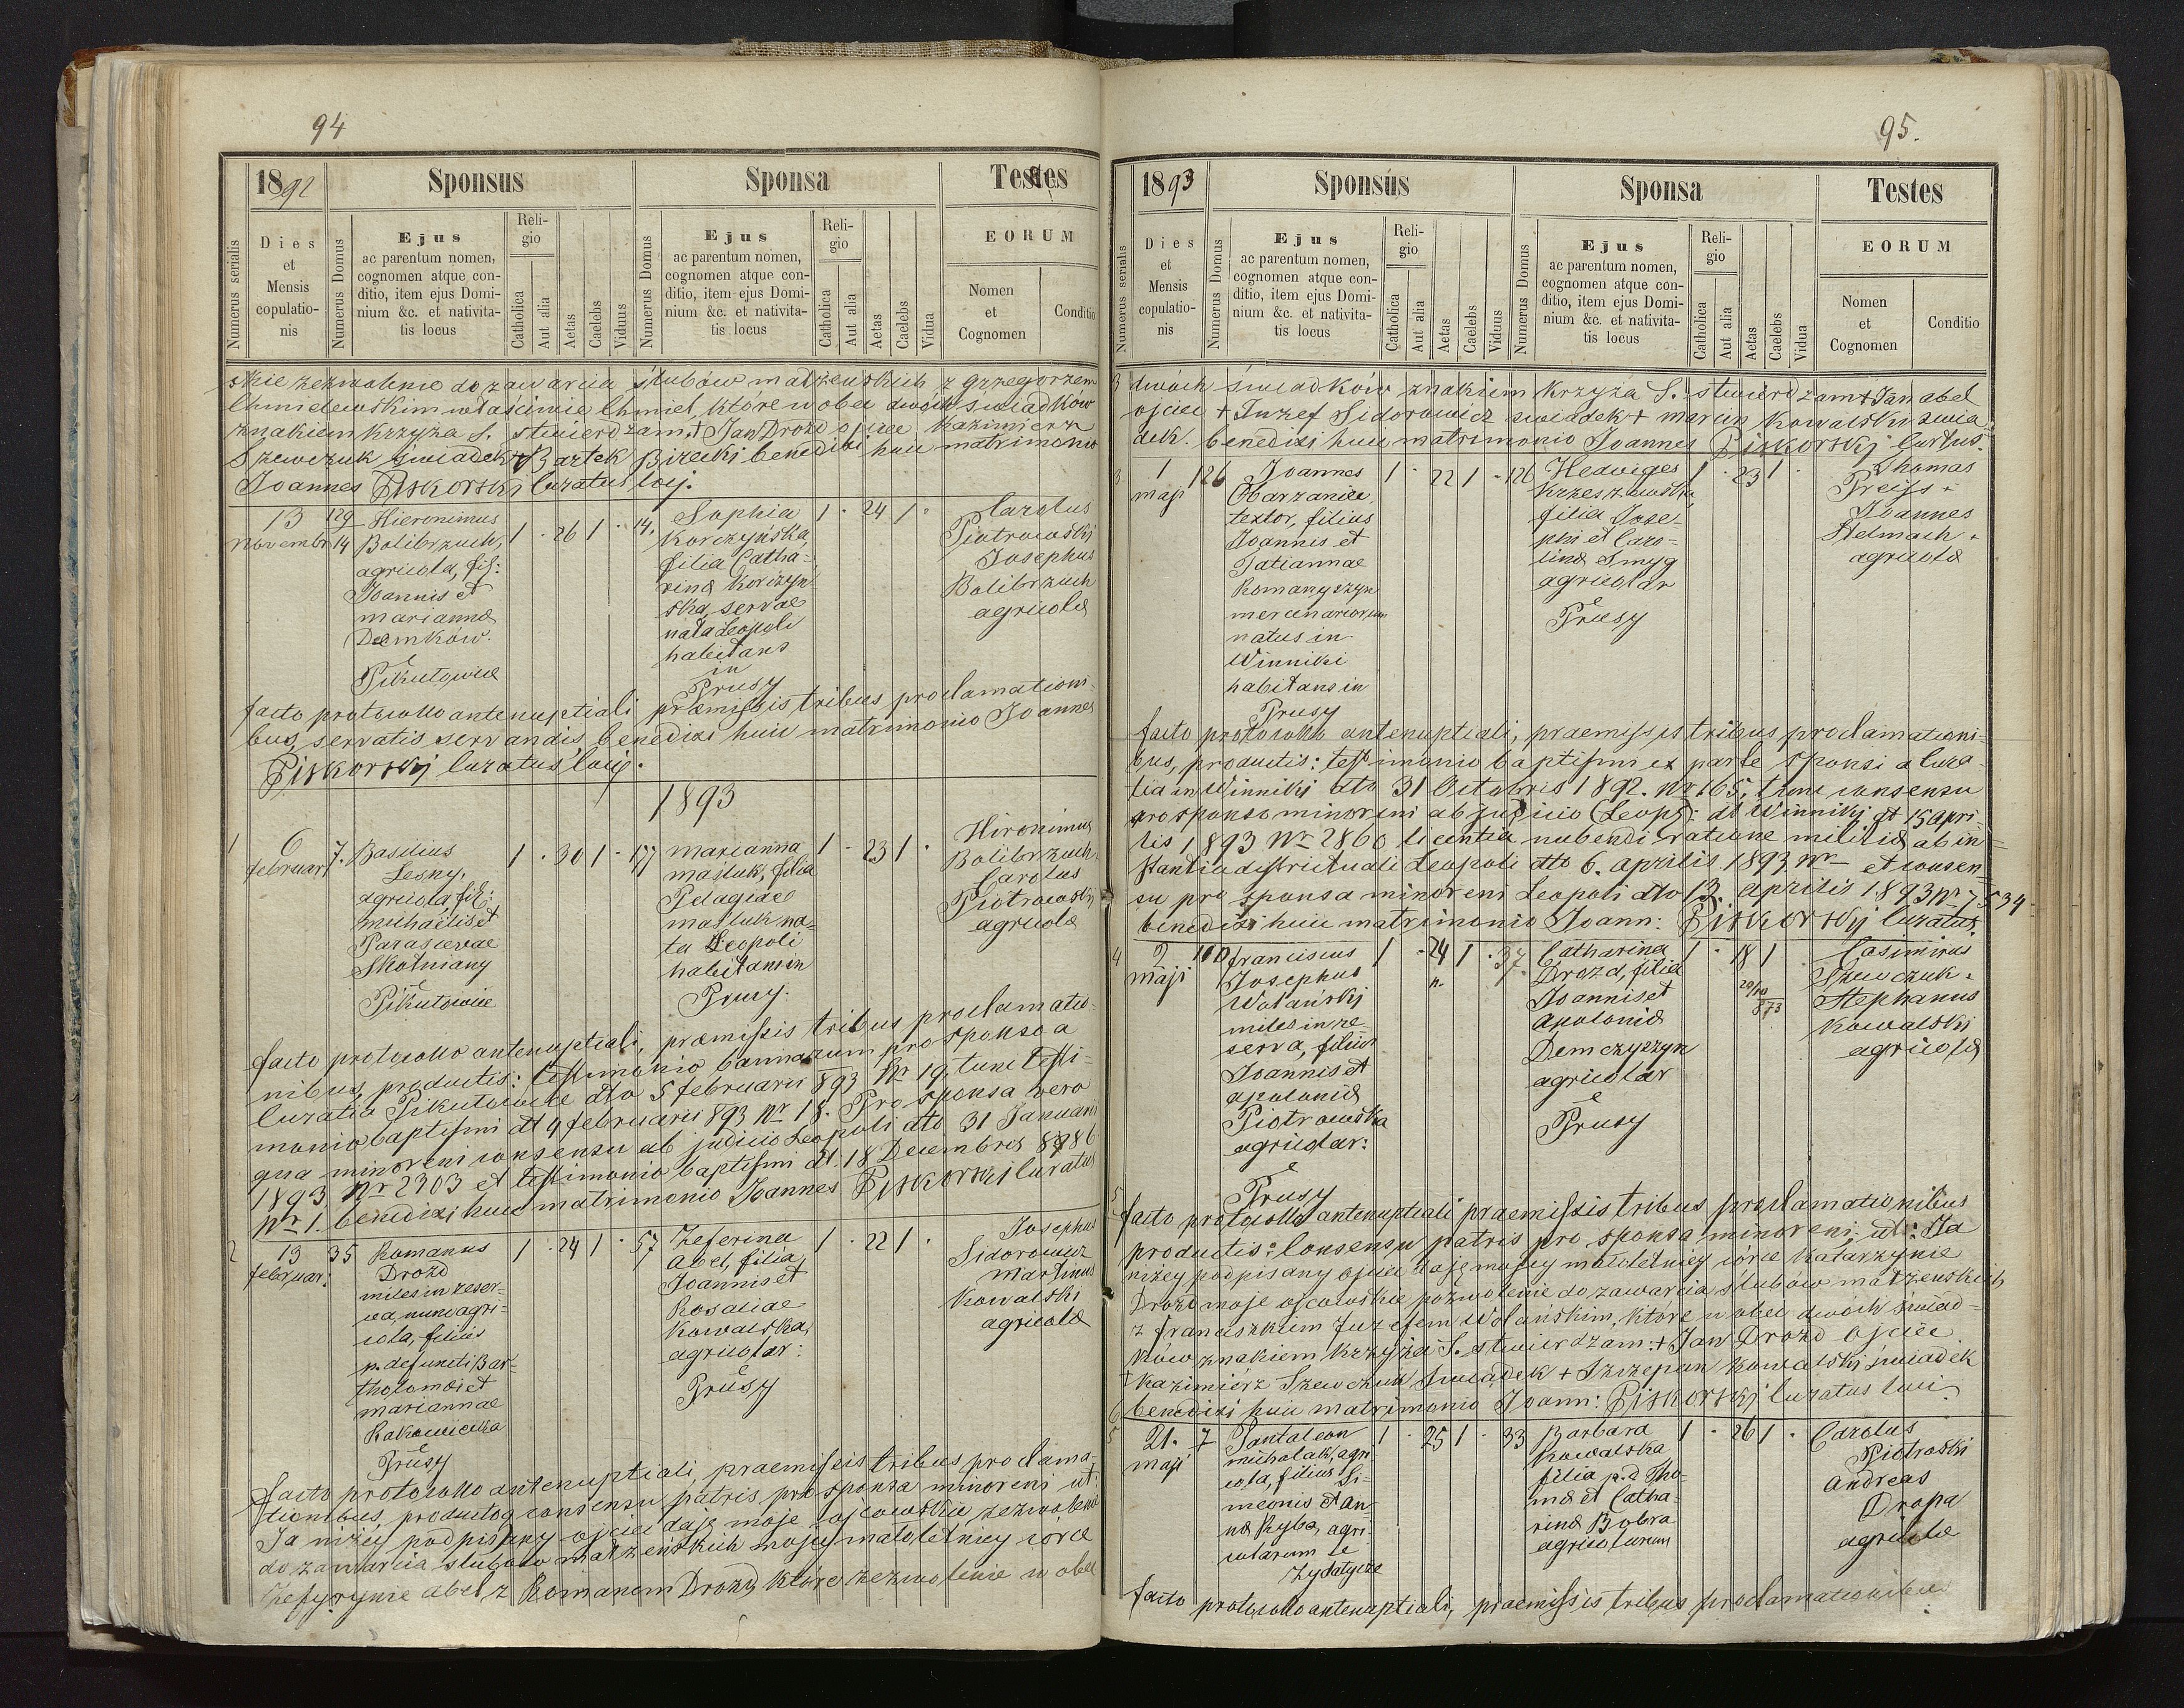 94
1892
Sponsus
Sponsa
Testes
Numerus serialis
Dies
et
Mensis
copulatio-
nis
Numerus Domus
Ejus
ac parentum nomen,
cognomen atque con-
ditio, item ejus Domi-
nium &c. et nativita-
tis locus
Reli-
gio
Catholica
Aut alia
Aetas
Caelebs
Viduus
Numerus Domus
Ejus
ac parentum nomen,
cognomen atque con-
ditio, item ejus Domi-
nium &c. et nativita-
tis locus
Reli-
gio
Catholica
Aut alia
Aetas
Caelebs
Vidua
EORUM
Nomen
et
Cognomen
Conditio
skie zezwolenie do zawarcia ślubów małżeńskich z Grzegorzem
Chmielewskim właściwie Chmiel, które w obec dwóch świadków
znakiem krzyża S. stwierdzam + Jan Drozd ojciec Kazimierz
Szewczuk świadek + Bartek Birecki benedixi huic matrimonio
Joannes Piskorski Curatus loci.
13
Novembr
129
14
Hieronimus
Bolibrzuch,
agricola, fil:
Joannis et
Mariannæ
Demków.
e
Pikutowice
1 · 26 1 · 14.
Sophia
Korczyńska,
filia Catha-
rinæ Korczyń
ska, servae
nata Leopoli
habitans
in
Prusy
1 · 24 1 ·
Carolus
Piotrowski
Josephus
Bolibrzuch
agricolæ
facto protocollo antenuptiali, præmissis tribus proclamationi-
bus, servatis servandis, benedixi huic matrimonio Joannes
Piskorskj Curatus loci.
1893
1
6
februar
7.
Basilius
Lesny,
agricola, fil:
Michaelis et
Parascevae
Skotniany
e
Pikutowice
1 · 30 1 · 177
Marianna
Masluk, filia
Pelagiae
Masluk na-
ta Leopoli
habitans in
Prusy.
1 · 23 1 ·
Hironimus
Bolibrzuch
Carolus
Piotrowski
agricolæ
facto protocollo antenuptiali, præmissis tribus proclamatio-
nibus, productis: testimonio bannarum pro sponso a
Curatia Pikutowice dto 5 februarii 893 Nr 19, tunc testi-
monio baptismi dt 4 februarii 893 Nr 18. Pro sponsa vero
qua minoreni consensu ab judicio Leopoli dto 31 Januarii
1893 Nr 2303 et testimonio baptismi dt. 18 Decembris 8986
Nr 1. benedixi huic matrimonio Joannes Piskorski Curatus
2
13
februar:
35
Romanus
Drozd
miles in reser-
va, nunc agri-
cola, filius
p. defuncti Bar-
tholomæi et
Mariannae
Rakowiecka
e
Prusy
1 · 24 1 · 57
Zeferina
Abel, filia
Joannis et
Rosaliae
Kowalska,
agricolar:
e
Prusy
1 · 22 1 ·
Josephus
Sidorowicz
Martinus
Kowalski
agricolæ
facto protocollo antenuptiali, praemissis tribus proclama-
tionibus, producto q consensu patris pro sponsa minoreni uti:
Ja niżej podpisany ojciec daję moje ojcowskie zezwolenie
do zawarcia ślubów małżeńskich mojej małoletniej córce
Zefyrynie Abel z Romanem Drozd, które zezwolenie w obec
95.
1893
Sponsus
Sponsa
Testes
Numerus serialis
Dies
et
Mensis
copulatio-
nis
Numerus Domus
Ejus
ac parentum nomen,
cognomen atque con-
ditio, item ejus Domi-
nium &c. et nativita-
tis locus
Reli-
gio
Catholica
Aut alia
Aetas
Caelebs
Viduus
Numerus Domus
Ejus
ac parentum nomen,
cognomen atque con-
ditio, item ejus Domi-
nium &c. et nativita-
tis locus
Reli-
gio
Catholica
Aut alia
Aetas
Caelebs
Vidua
EORUM
Nomen
et
Cognomen
Conditio
3 dwóch świadków znakiem krzyża S. stwierdzam + Jan Abel
ojciec + Juzef Sidorowicz swiadek + Marcin Kowalski swia
dek. benedixi huic matrimonio Joannes Piskorskj Curtus.
3
1
maji
126
Joannes
Obarzaniec,
textor, filius
Joannis et
Tatiannae
Romanyszyn
mercenariorum
natus in
Winniki
habitans in
Prusy
1 · 22 1 · 126
Hedviges
Krzeszowska,
filia Jose-
phi et Caro-
linæ Smyg
agricolar
e
Prusy
1 · 23 1 ·
Thomas
Preiss +
Joannes
Stelmach +
agricolæ
facto protocollo antenuptiali, praemissis tribus proclamationi-
bus, productis: testimonio baptismi ex parte sponsi a Cura-
tia in Winniki dto 31 Octobris 1892. Nr 165, tunc consensu
pro sponso minoreni ab judicio (Leopo): in Winnikj dt 15 apri-
lis 1893 Nr 2860 licentia nubendi ratione militiæ ab in-
stantia districtuali Leopoli dto 6. aprilis 1893 Nr — et consen-
su pro sponsa minoreni Leopoli dto 13. aprilis 1893 Nr 7534
benedixi huic matrimonio Joann: Piskorskj Curatus.
4
2
maji
100
franciscus
Josephus
Wolańskj
miles in re-
serva, filius
Joannis et
Apoloniæ
Piotrowska
agricolar:
e
Prusy
1 · 24 1 · 37.
Catharina
Drozd, filia
Joannis et
Apoloniæ
Demczyszyn
agricolar
e
Prusy
1 · 18 1
29/10
873
Casimirus
Szewczuk +
Stephanus
Kowalskj
agricolæ
5
facto protocollo antenuptiali praemissis tribus proclamationibus
productis: Consensu patris pro sponsa minoreni, uti: Ja
niżej podpisany ojciec daję mojej małoletniej córce Katarzynie
Drozd moje ojcowskie pozwolenie do zawarcia ślubów małżeńskich
z franciszkiem Juzefem Wolańskim, które w obec dwóch świad-
ków znakiem krzyża S. stwierdzam: + Jan Drozd ojciec
+ Kazimierz Szewczuk świadek + Szczepan Kowalski świadek
6 benedixi huic matrimonio Joann: Piskorskj Curatus loci.
5
21.
maji
7
Pantaleon
Michalak, agri-
cola, filius Si-
meonis et An-
næ Ryba, agri-
colarum
e
Zydatycze
1 · 25 1 · 33
Barbara
Kowalska
filia p.d Tho-
mæ et Catha-
rinæ Bobra
agricolarum
1 · 26 1 ·
Carolus
Piotroski
Andreas
Drapa
agricolæ
facto protocollo antenuptiali, praemissis tribus proclamationibus